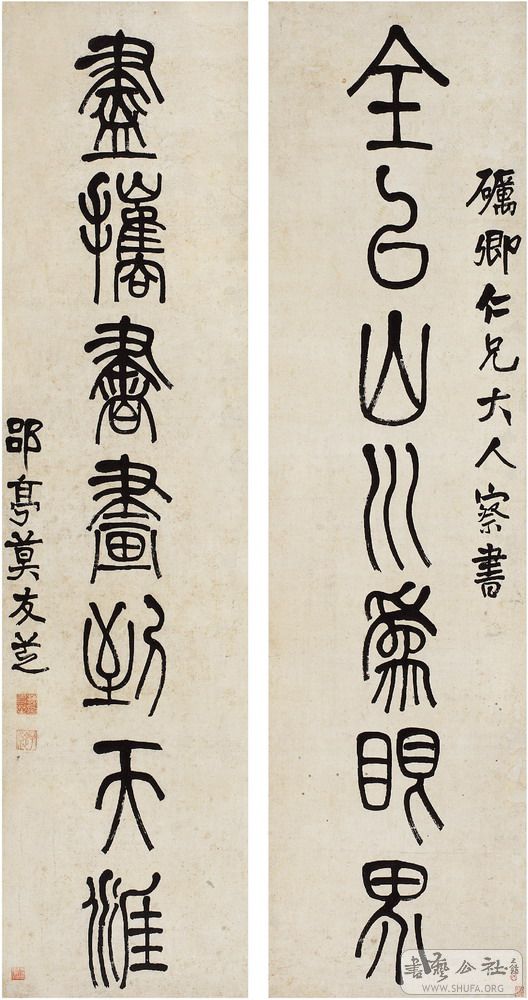 礪卿仁兄大人察書
全以山川為眼界
盡攜書畫到天涯
郘亭莫友芝
書藝公社
WWW.SHUFA.ORG